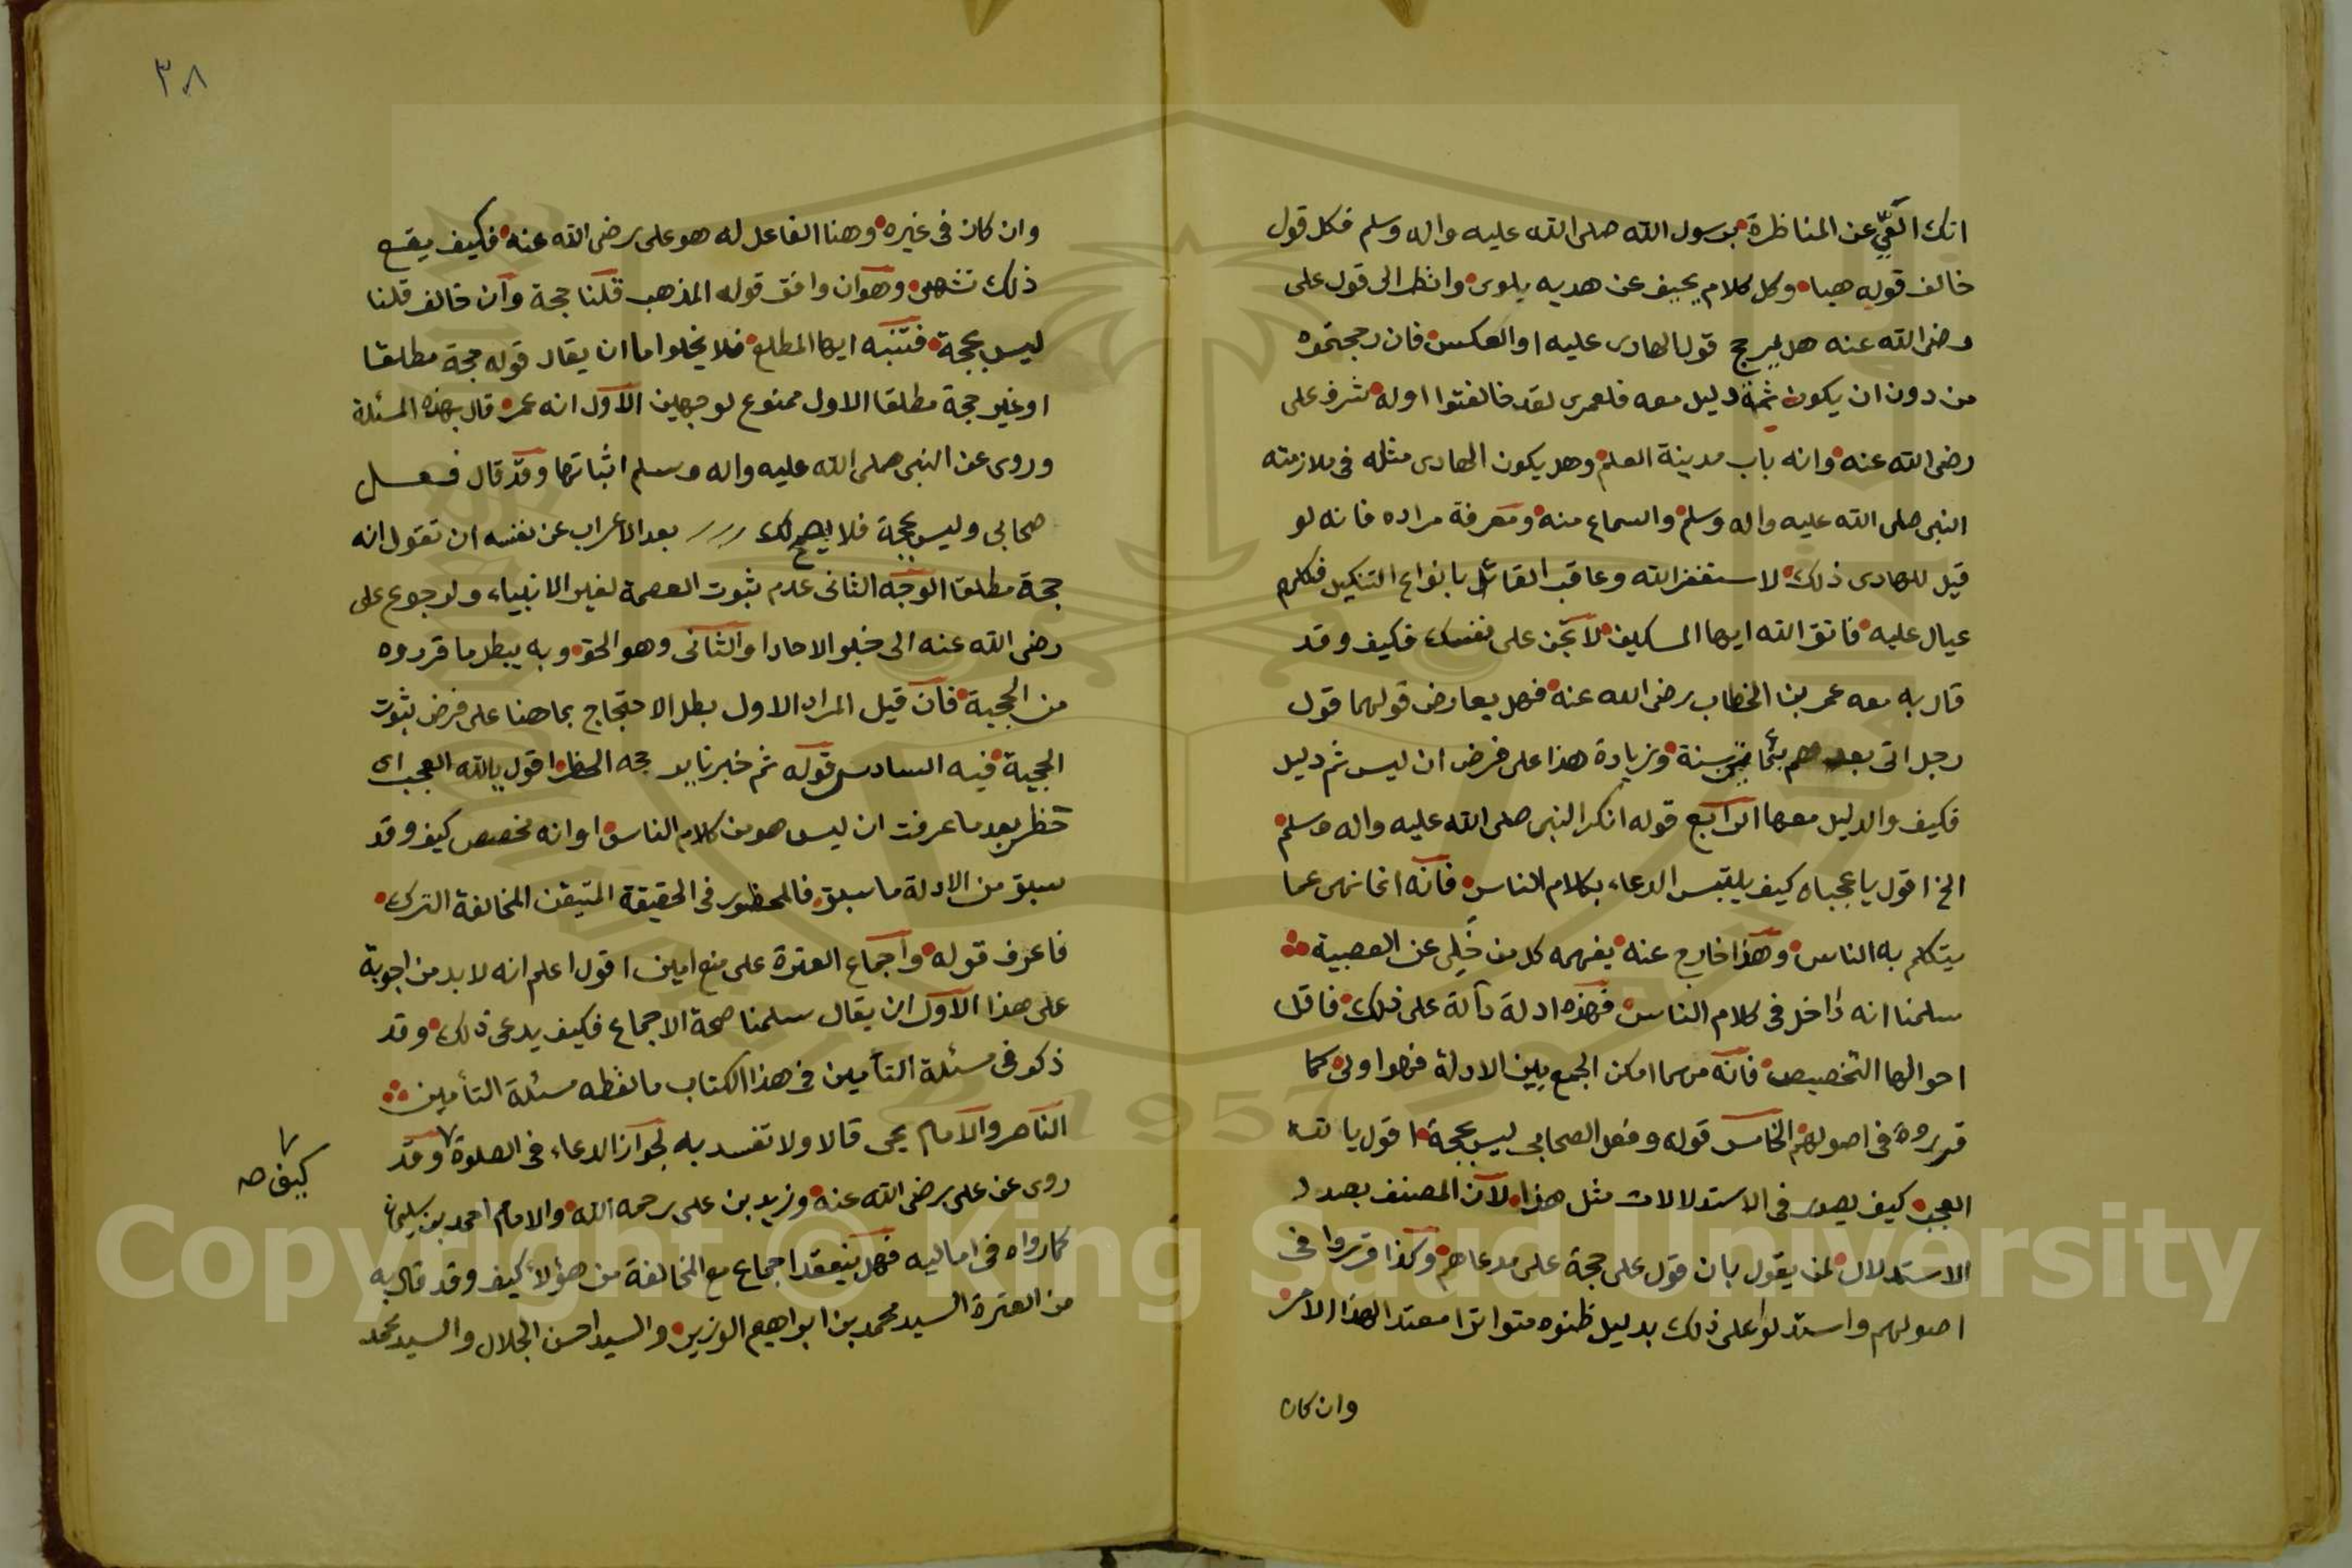 انك الغني عن المناظرة برسول الله صلى الله عليه واله وسلم فكل قول
خالف قوله هبا وكل كلام يحيف عن هديه يلوى وانظر الى قول على
رضى الله عنه هل يرجح قول الهادى عليه او العكس فان رجحتموه
من دون ان يكون ثمة دليل معه فلعمرى لقد خالفتوا اوله شرف على
رضى الله عنه وانه باب مدينة العلم وهل يكون الهادى مثله فى ملازمته
النبى صلى الله عليه واله وسلم والسماع منه ومعرفة مراده فانه لو
قيل للهادى ذلك لاستغفر الله وعاقب القائل بانواع التنكيل فكلهم
عيال عليه فاتق الله ايها المسكين لا تجن على نفسك فكيف وقد
قال به معه عمر بن الخطاب رضى الله عنه فهل يعارض قولهما قول
رجل اتى بعدهم سنة وزيادة هذا على فرض ان ليس ثم دليل
فكيف والدليل معها الرابع قوله انكر النبى صلى الله عليه واله وسلم
الخ اقول يا عجباه كيف يلتبس الدعاء بكلام الناس فانه انما نهى عما
يتكلم به الناس وهذا خارج عنه يفهمه كل من خلى عن العصبية
سلمنا انه داخل فى كلام الناس فهذه ادلة دالة على ذلك فاقل
احوالها التخصيص فانه مهما امكن الجمع بين الادلة فهو اولى كما
قرروه فى اصولهم الخامس قوله وفعل الصحابى ليس بحجة اقول يا لله
العجب كيف يصدر فى الاستدلالات مثل هذا لان المصنف بصدد
الاستدلال لمن يقول بان قول على حجة على مدعاهم وكذا قرروا فى
اصولهم واستدلوا على ذلك بدليل ظنوه متواترا معتدا لهذا الامر
وان كان
٣٨
وان كان فى غيره وهنا الفاعل له هو على رضى الله عنه فكيف يقع
ذلك تشهى وهو ان وافق قوله المذهب قلنا حجة وان خالف قلنا
ليس بحجة فتنبه ايها المطلع فلا يخلوا اما ان يقال قوله حجة مطلقا
او غير حجة مطلقا الاول ممنوع لوجهين الاول انه عمر قال بهذه المسئلة
وروى عن النبى صلى الله عليه واله وسلم اثباتها وقد قال فعل
صحابى وليس بحجة فلا يصح لك بعد الاعراب عن نفسه ان تقول انه
حجة مطلقا الوجه الثانى عدم ثبوت العصمة لغير الانبياء ولرجوع على
رضى الله عنه الى خبر الاحاد او الثانى وهو الحق وبه يبطل ما قرروه
من الحجية فان قيل المراد الاول بطل الاحتجاج بما هنا على فرض ثبوت
الحجية فيه السادس قوله ثم خبرنا يرجحه الحظر اقول يالله العجب اى
حظر بعد ما عرفت ان ليس هو من كلام الناس او انه مخصص كيف وقد
سبق من الادلة ما سبق فالمحظور فى الحقيقة المتيقن المخالفة الترك
فاعرف قوله واجماع العترة على منع امين اقول اعلم انه لا بد من اجوبة
على هذا الاول ان يقال سلمنا صحة الاجماع فكيف يدعى ذلك وقد
ذكر فى مسئلة التأمين فى هذا الكتاب ما لفظه مسئلة التأمين
الناصر والامام يحى قالا ولا تفسد به لجواز الدعاء فى الصلوة وقد
كيف صح
روى عن على رضى الله عنه وزيد بن على رحمه الله والامام احمد بن سليمان
كما رواه فى اماليه فهل ينعقد اجماع مع المخالفة من هؤلاء كيف وقد قال به
من العترة السيد محمد بن ابراهيم الوزير والسيد الحسن الجلال والسيد محمد
Copyright © King Saud University
1957